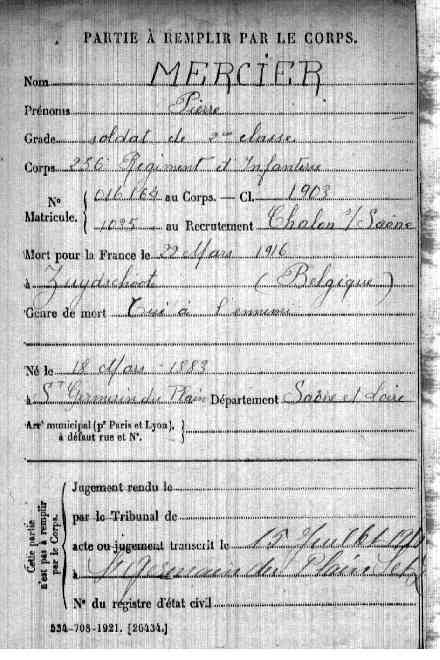 PARTIE À REMPLIR PAR LE CORPS.
Nom MERCIER
Prénoms Pierre
Grade soldat de 2me classe
Corps 236 Régiment d'Infanterie
N° 016164 au Corps. — Cl. 1903
Matricule. 1095 au Recrutement Chalon s/ Saône
Mort pour la France le 22 Mars 1916
à Zuydschoote (Belgique)
Genre de mort Tué à l'ennemi
Né le 18 Mars 1883
à St Germain du Plain Département Saône et Loire
Arrt municipal (pr Paris et Lyon),
à défaut rue et N°.
Cette partie
n'est pas à remplir
par le Corps.
Jugement rendu le
par le Tribunal de
acte ou jugement transcrit le 15 Juillet
à St Germain du Plain
N° du registre d'état civil
534-708-1921. [26434.]